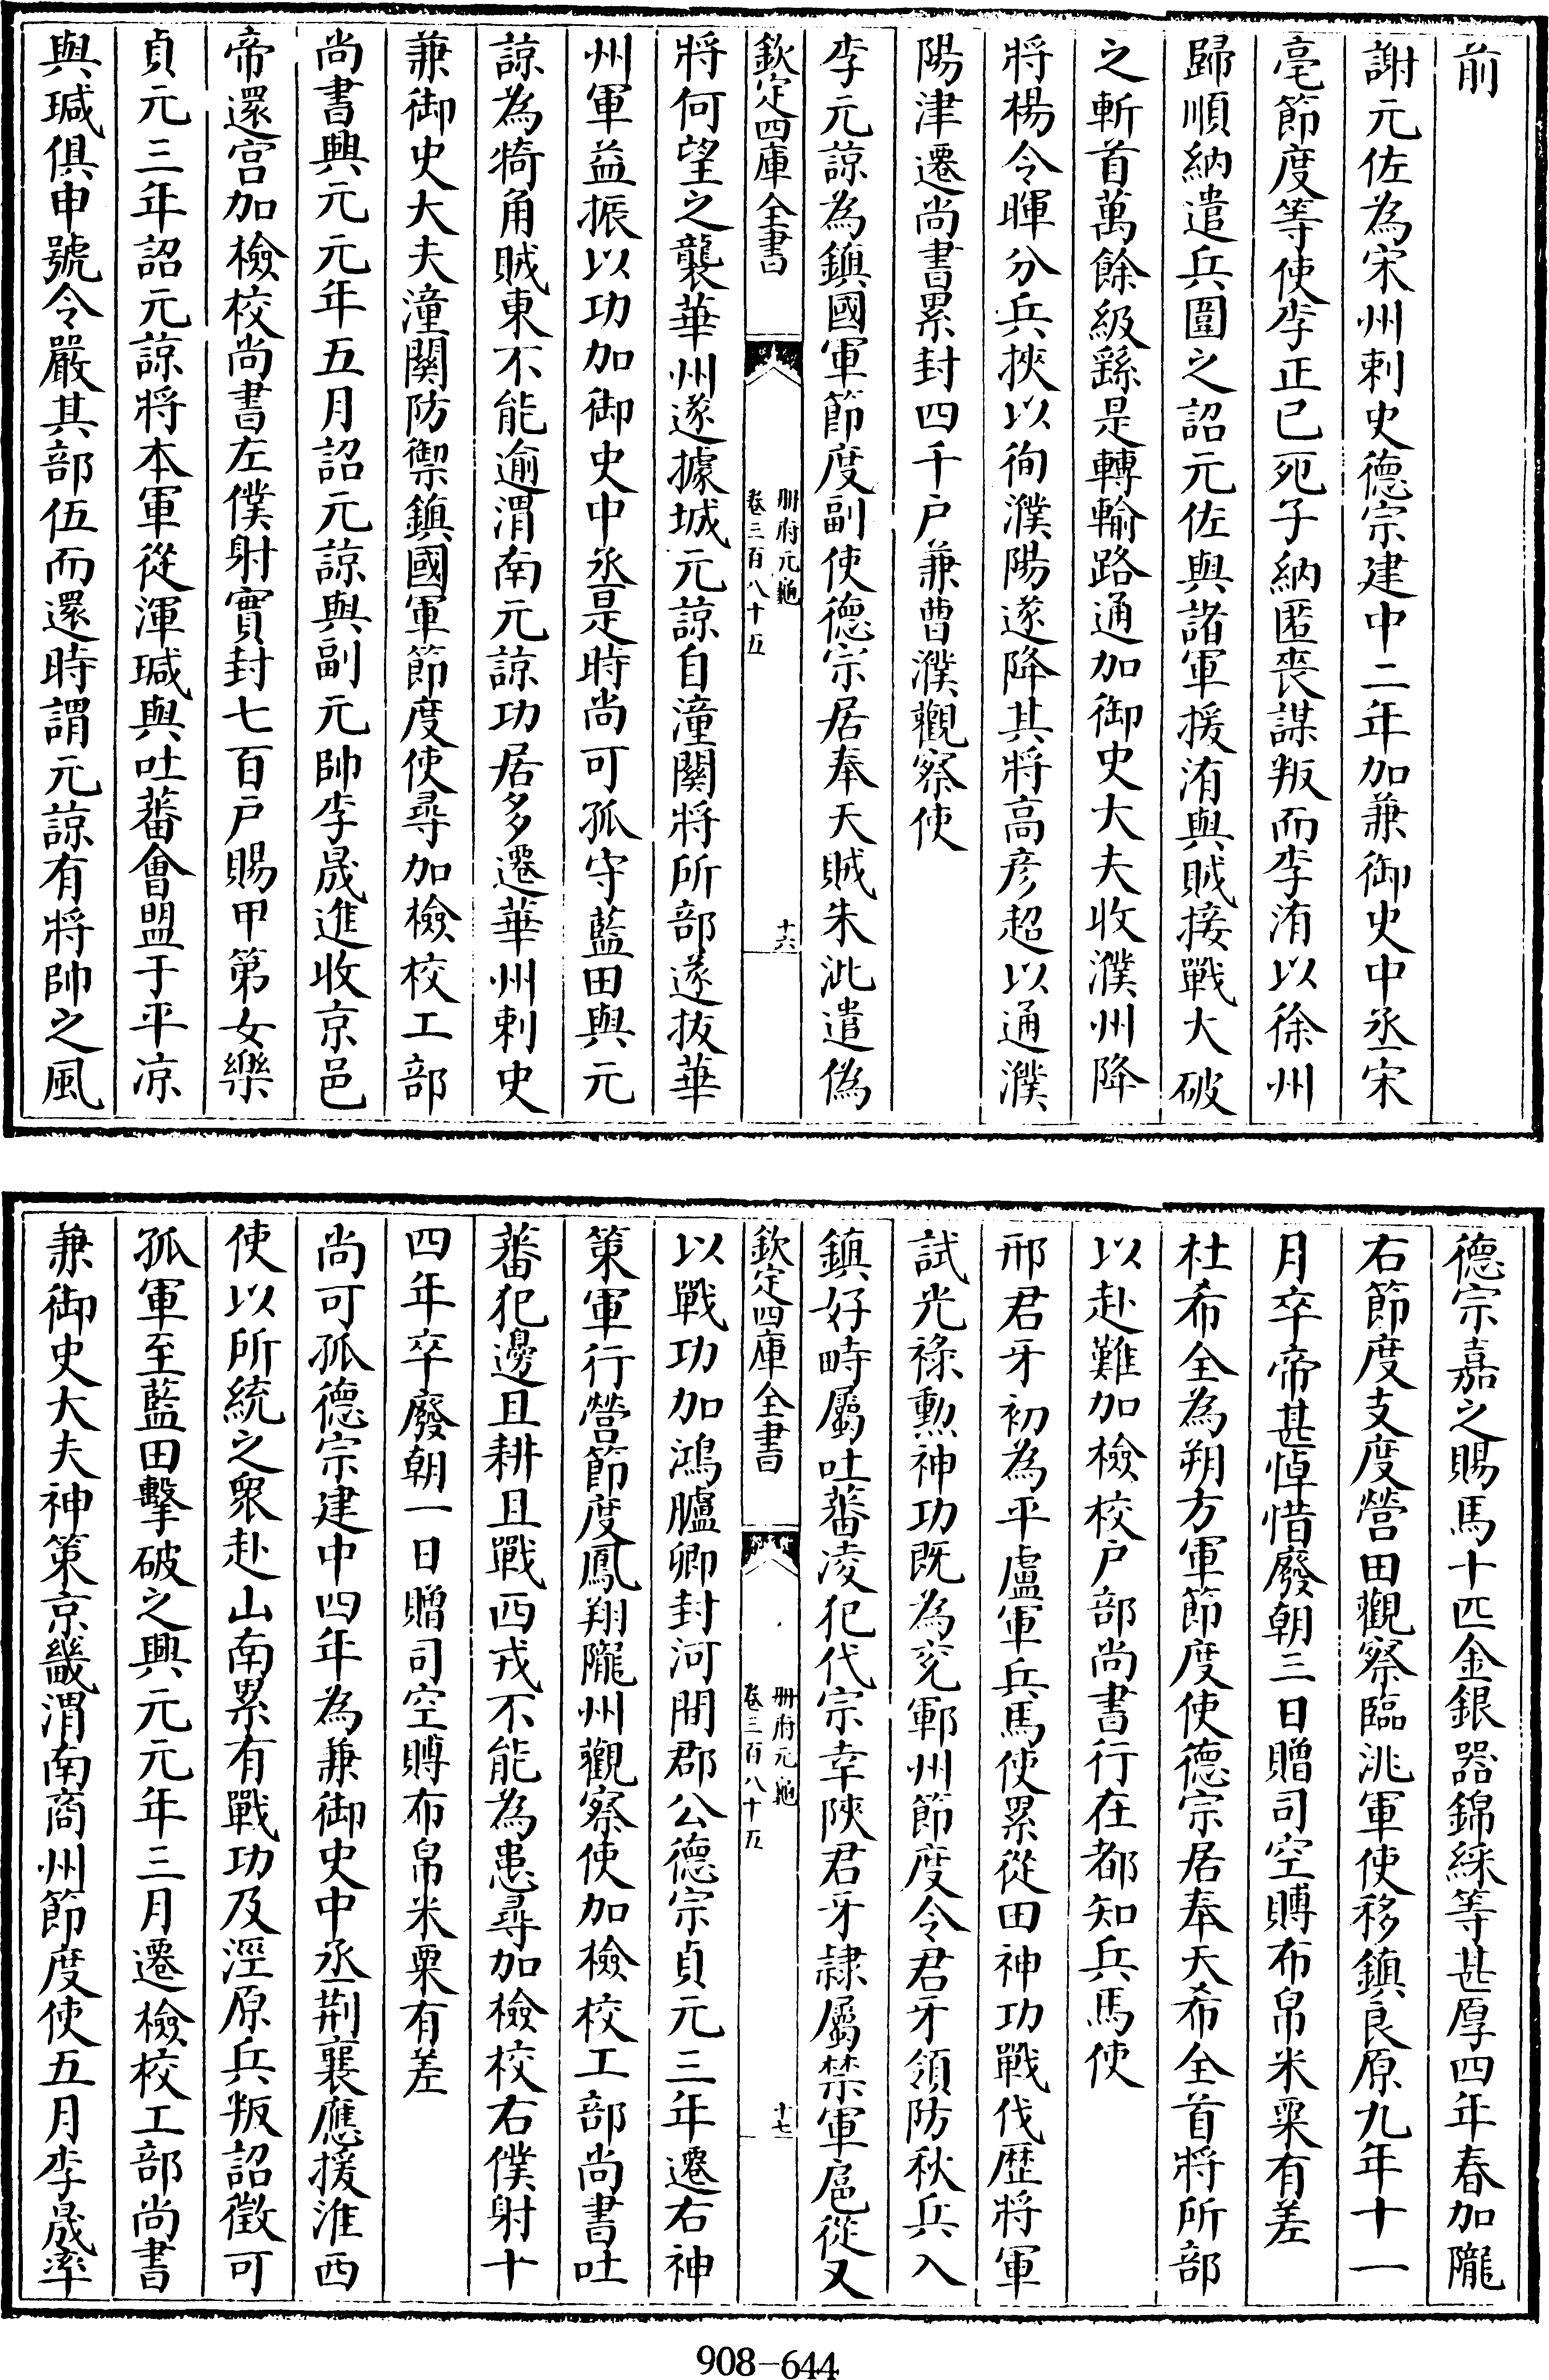 前
謝元佐為宋州刺史德宗建中二年加兼御史中丞宋
亳節度等使李正已死子納匿喪謀叛而李洧以徐州
歸順納遣兵圍之詔元佐與諸軍援洧與賊接戰大破
之斬首萬餘級繇是轉輸路通加御史大夫收濮州降
將楊令暉分兵挾以徇濮陽遂降其將高彦超以通濮
陽津遷尚書累封四千户兼曹濮觀察使
李元諒為鎮國軍節度副使德宗居奉天賊朱泚遣偽
欽定四庫全書
冊府元龜
卷三百八十五
十六
將何望之襲華州遂據城元諒自潼關將所部遂拔華
州軍益振以功加御史中丞是時尚可孤守藍田與元
諒為犄角賊東不能逾渭南元諒功居多遷華州刺史
兼御史大夫潼關防禦鎮國軍節度使尋加檢校工部
尚書興元元年五月詔元諒與副元帥李晟進收京邑
帝還宫加檢校尚書左僕射實封七百户賜甲第女樂
貞元三年詔元諒將本軍從渾瑊與吐蕃會盟于平凉
與瑊俱申號令嚴其部伍而還時謂元諒有將帥之風
德宗嘉之賜馬十匹金銀器錦綵等甚厚四年春加隴
右節度支度營田觀察臨洮軍使移鎮良原九年十一
月卒帝甚悼惜廢朝三日贈司空賻布帛米粟有差
杜希全為朔方軍節度使德宗居奉天希全首將所部
以赴難加檢校户部尚書行在都知兵馬使
邢君牙初為平盧軍兵馬使累從田神功戰伐歴將軍
試光祿勲神功既為兖鄆州節度令君牙領防秋兵入
鎮好畤屬吐蕃凌犯代宗幸陜君牙隷屬禁軍扈從又
欽定四庫全書
冊府元龜
卷三百八十五
十七
以戰功加鴻臚卿封河間郡公德宗貞元三年遷右神
策軍行營節度鳳翔隴州觀察使加檢校工部尚書吐
蕃犯邊且耕且戰西戎不能為患尋加檢校右僕射十
四年卒廢朝一日贈司空賻布帛米粟有差
尚可孤德宗建中四年為兼御史中丞荆襄應援淮西
使以所統之衆赴山南累有戰功及涇原兵叛詔徵可
孤軍至藍田擊破之興元元年三月遷檢校工部尚書
兼御史大夫神策京畿渭南商州節度使五月李晟率
908-644